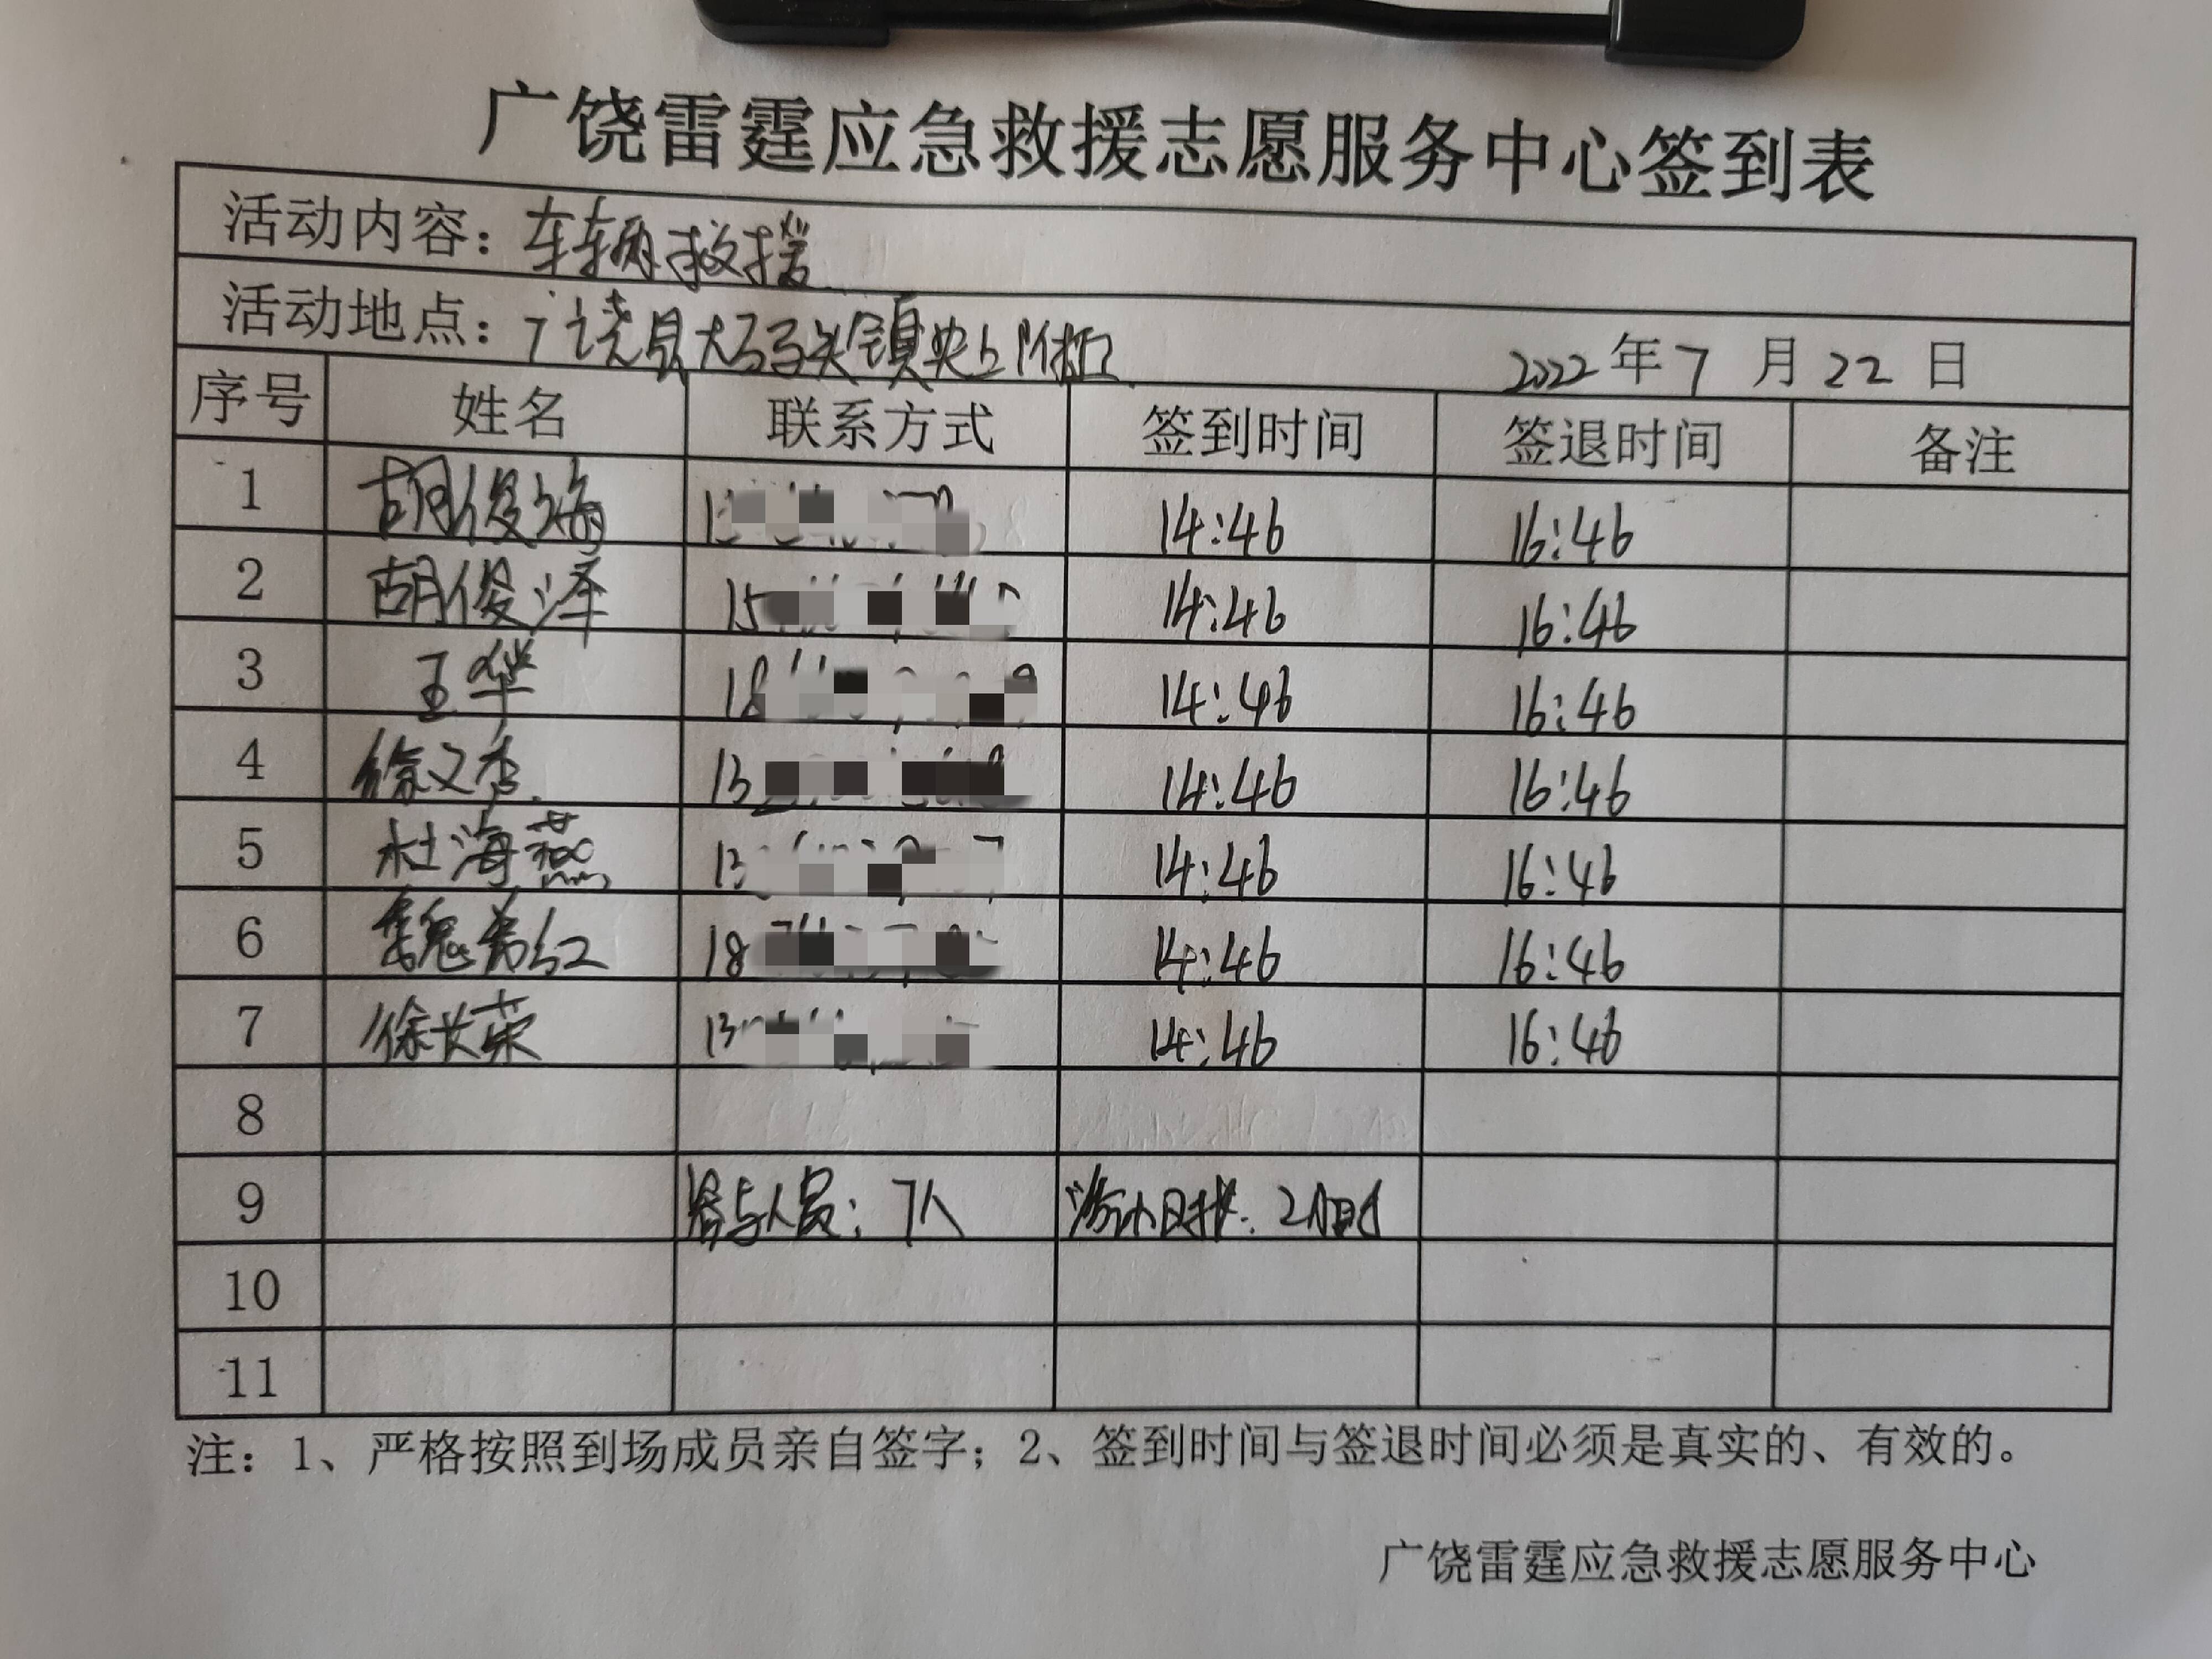 广饶雷霆应急救援志愿服务中心签到表
活动内容：车辆救援
活动地点：广饶县大码头镇央上附近 2022年7月22日
序号 姓名 联系方式 签到时间 签退时间 备注
1 胡俊海 13 14:46 16:46
2 胡俊泽 15 14:46 16:46
3 王华 18 14:46 16:46
4 徐文杰 13 14:46 16:46
5 杜海燕 13 14:46 16:46
6 魏 红 18 14:46 16:46
7 徐长荣 13 14:46 16:46
8
9 参与人员：7人 2小时
10
11
注：1、严格按照到场成员亲自签字；2、签到时间与签退时间必须是真实的、有效的。
广饶雷霆应急救援志愿服务中心